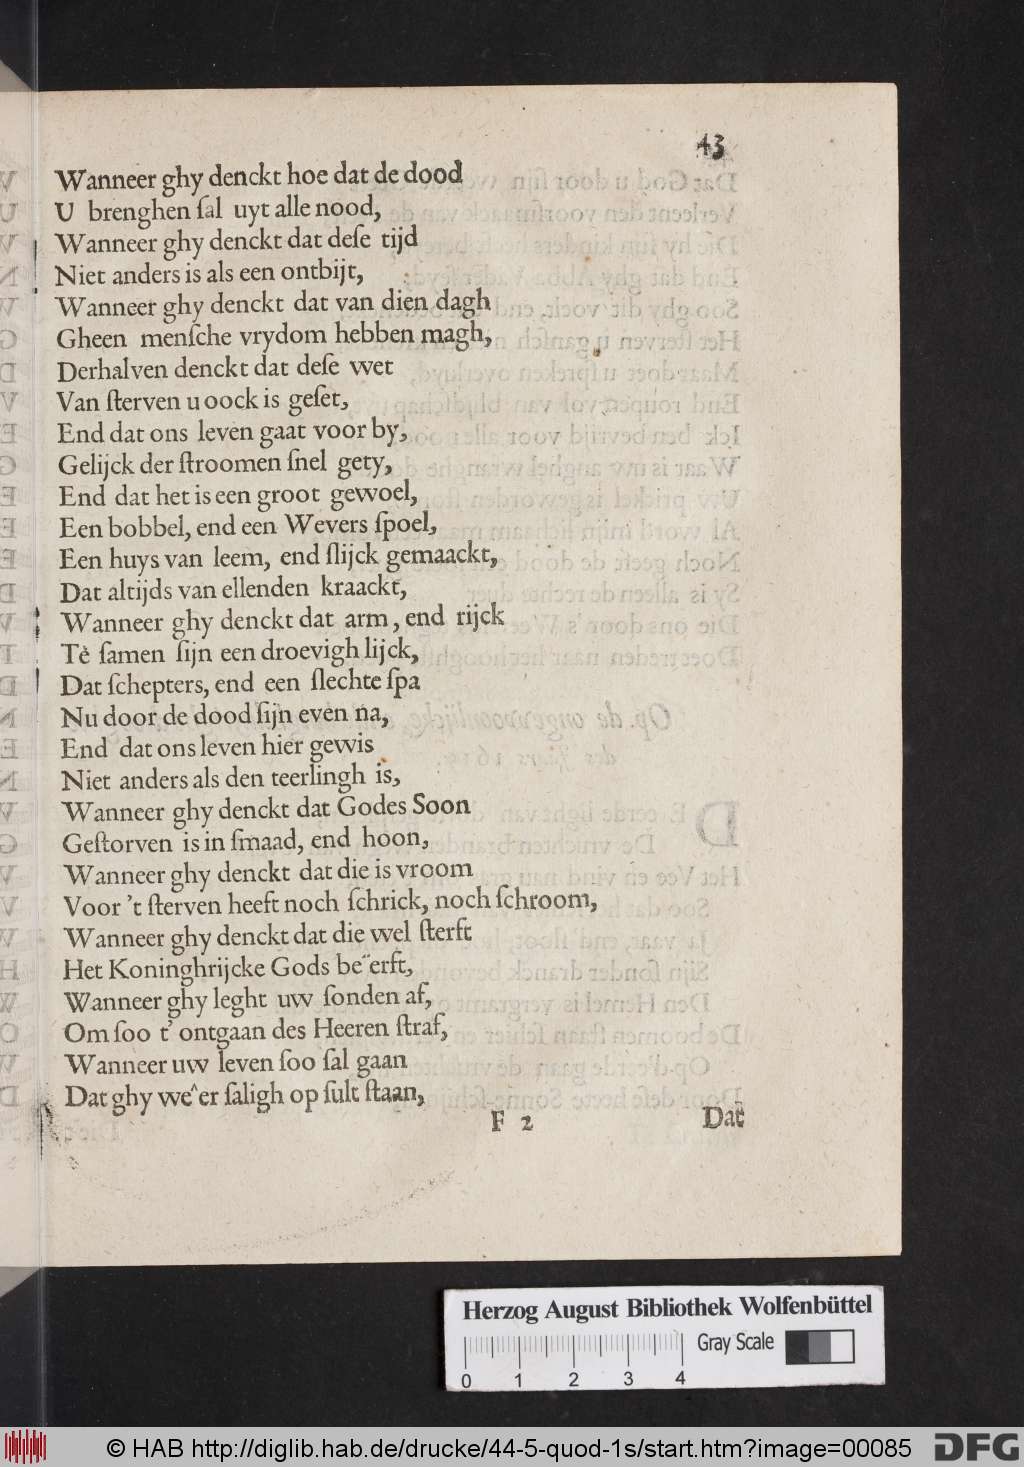 43
Wanneer ghy denckt hoe dat de dood
U brenghen ſal uyt alle nood,
Wanneer ghy denckt dat deſe tijd
Niet anders is als een ontbijt,
Wanneer ghy denckt dat van dien dagh
Gheen menſche vrydom hebben magh,
Derhalven denckt dat deſe wet
Van ſterven u oock is geſet,
End dat ons leven gaat voor by,
Gelijck der ſtroomen ſnel gety,
End dat het is een groot gewoel,
Een bobbel, end een Wevers ſpoel,
Een huys van leem, end ſlijck gemaackt,
Dat altijds van ellenden kraackt,
Wanneer ghy denckt dat arm, end rijck
Tè ſamen ſijn een droevigh lijck,
Dat ſchepters, end een ſlechte ſpa
Nu door de dood ſijn even na,
End dat ons leven hier gewis
Niet anders als den teerlingh is,
Wanneer ghy denckt dat Godes Soon
Geſtorven is in ſmaad, end hoon,
Wanneer ghy denckt dat die is vroom
Voor 't ſterven heeft noch ſchrick, noch ſchroom,
Wanneer ghy denckt dat die wel ſterft
Het Koninghrijcke Gods be¨erft,
Wanneer ghy leght uw ſonden af,
Om ſoo t' ontgaan des Heeren ſtraf,
Wanneer uw leven ſoo ſal gaan
Dat ghy we^er ſaligh op ſult ſtaan,
F 2 Dat
Herzog August Bibliothek Wolfenbüttel
Gray Scale
0 1 2 3 4
© HAB http://diglib.hab.de/drucke/44-5-quod-1s/start.htm?image=00085
DFG